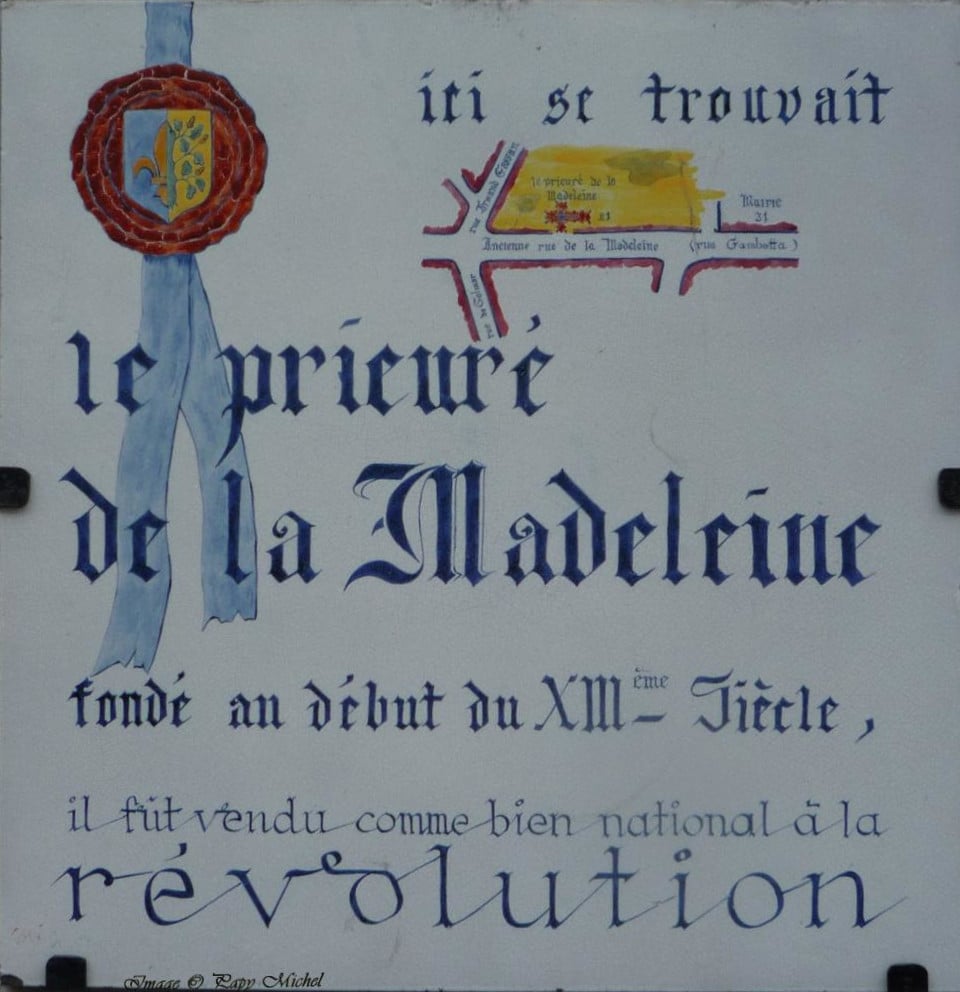 ici se trouvait
le prieuré de la
Madeleine
21
Mairie
31
Ancienne rue de la Madeleine (rue Gambetta)
le prieuré
de la Madeleine
fondé au début du XIIIème Siècle,
il fût vendu comme bien national à la
révolution
Image © Papy Michel